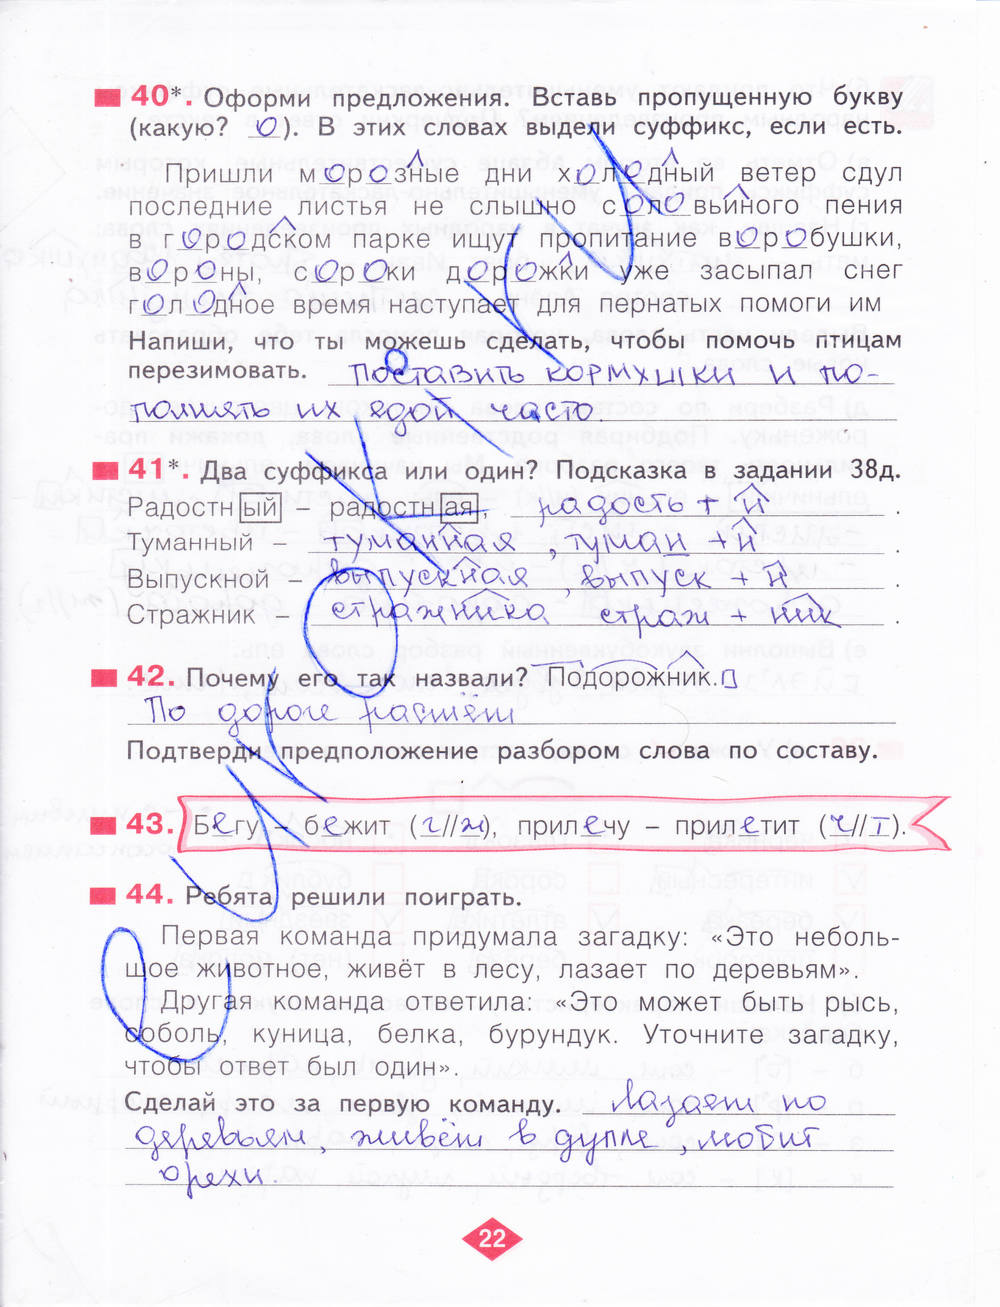 40*. Оформи предложения. Вставь пропущенную букву
(какую? о). В этих словах выдели суффикс, если есть.
Пришли морозные дни холодный ветер сдул
последние листья не слышно соловьиного пения
в городском парке ищут пропитание воробушки,
вороны, сороки дорожки уже засыпал снег
голодное время наступает для пернатых помоги им
Напиши, что ты можешь сделать, чтобы помочь птицам
перезимовать. Поставить кормушки и по-
полнять их едой часто
41*. Два суффикса или один? Подсказка в задании 38д.
Радостный – радостная, радость + н.
Туманный – туманная, туман + н.
Выпускной – выпускная, выпуск + н.
Стражник – стражника страж + ник.
42. Почему его так назвали? Подорожник.
По дороге растёт
Подтверди предположение разбором слова по составу.
43. Бегу – бежит (г//ж), прилечу – прилетит (ч//т).
44. Ребята решили поиграть.
Первая команда придумала загадку: «Это неболь-
шое животное, живёт в лесу, лазает по деревьям».
Другая команда ответила: «Это может быть рысь,
соболь, куница, белка, бурундук. Уточните загадку,
чтобы ответ был один».
Сделай это за первую команду. Лазает по
деревьям, живёт в дупле, любит
орехи.
22